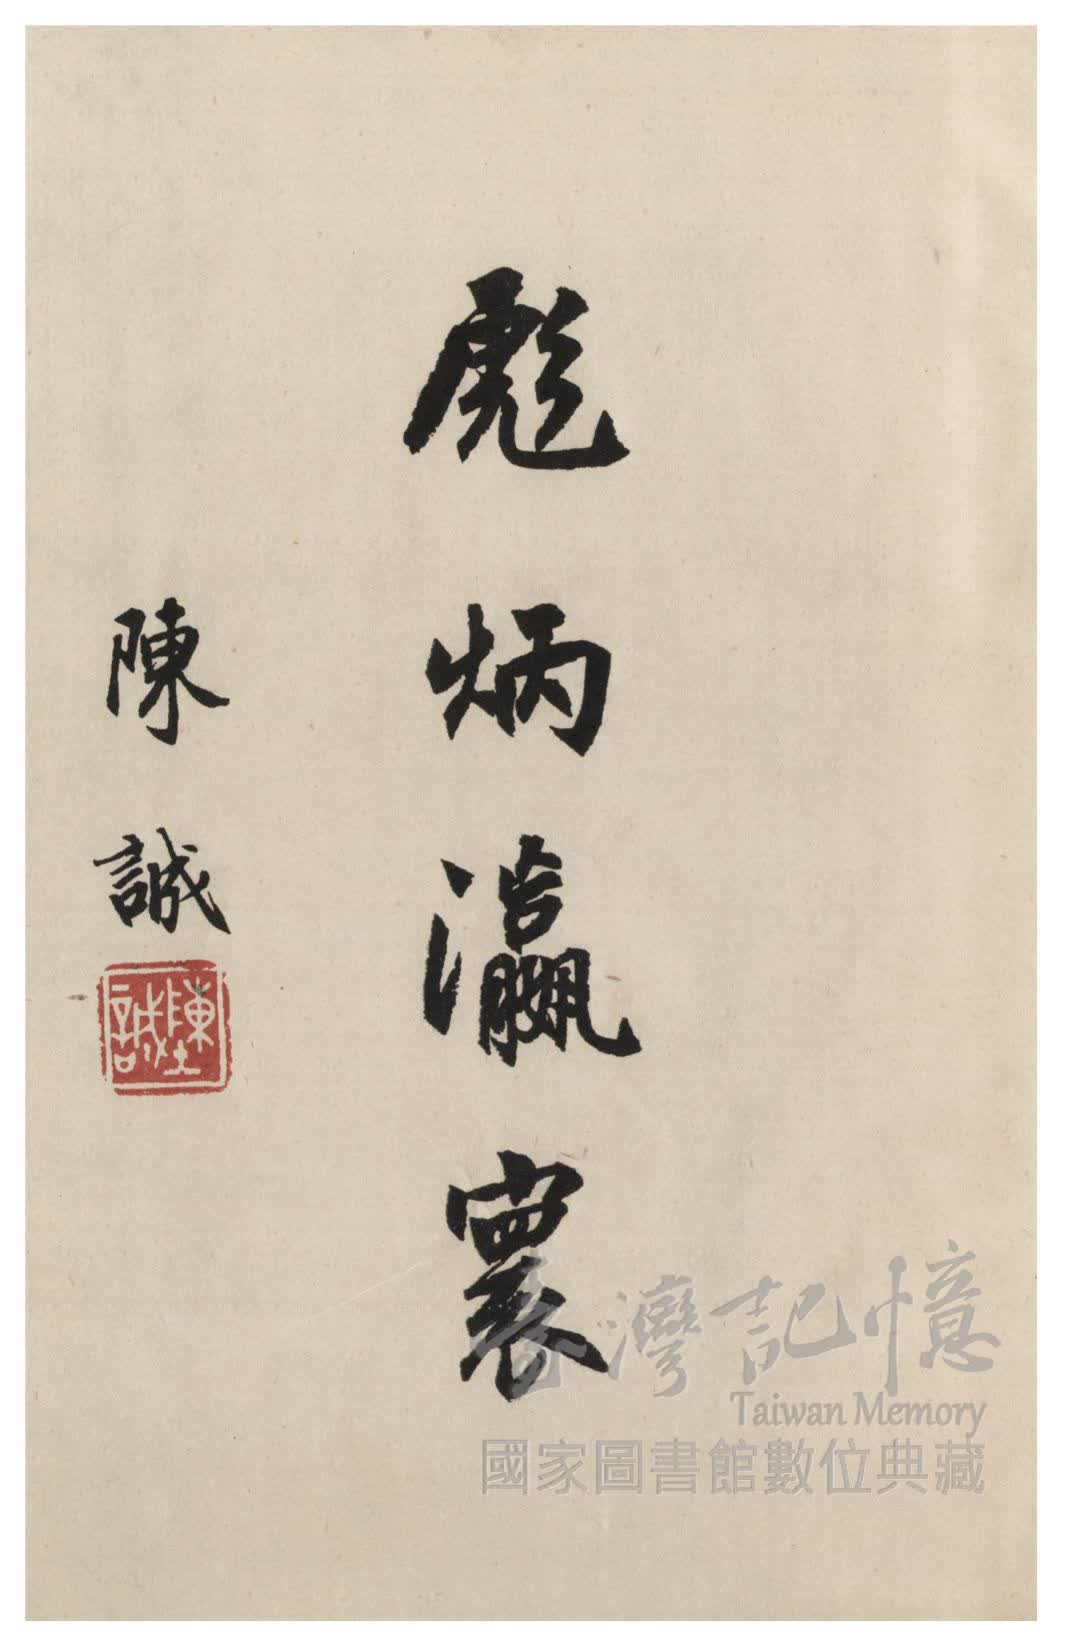 彪炳瀛寰
陳誠
陳誠
臺灣記憶
Taiwan Memory
國家圖書館數位典藏